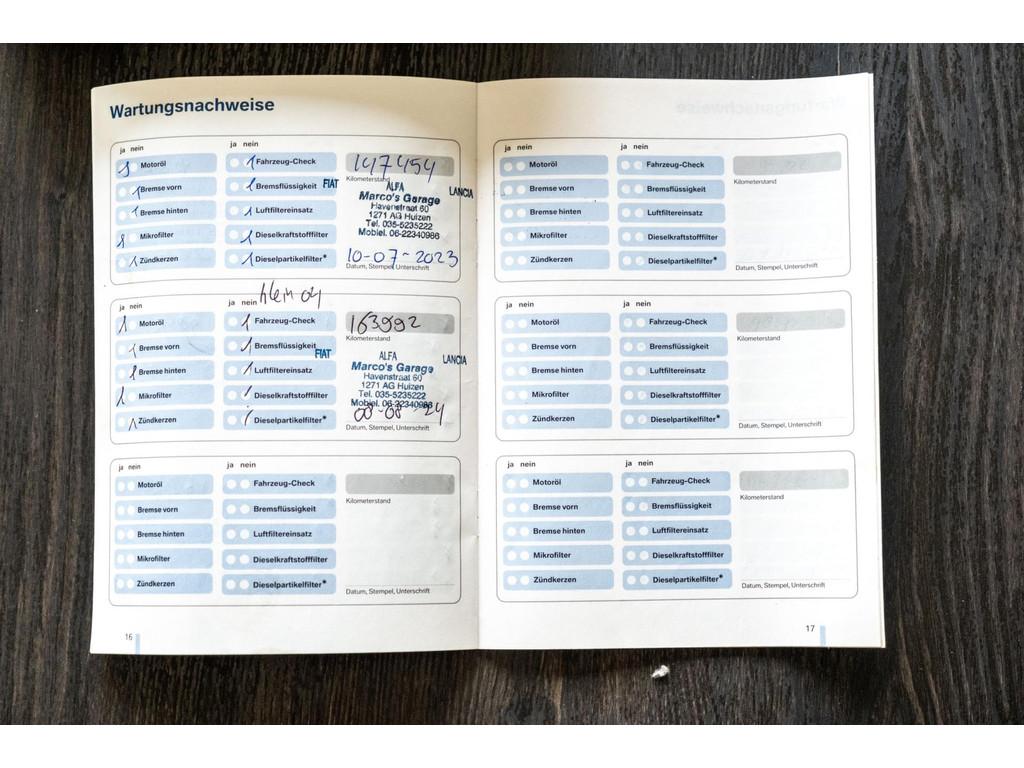 Wartungsnachweise
ja nein
ja nein
Motoröl
Fahrzeug-Check
147454
Kilometerstand
Bremse vorn
Bremsflüssigkeit
FIAT
ALFA
LANCIA
Marco's Garage
Havenstraat 60
1271 AG Huizen
Tel. 035-5235222
Mobiel. 06-22340986
Bremse hinten
Luftfiltereinsatz
Mikrofilter
Dieselkraftstofffilter
Zündkerzen
Dieselpartikelfilter*
10-07-2023
Datum, Stempel, Unterschrift
ja nein
ja nein
klein
Motoröl
Fahrzeug-Check
163992
Kilometerstand
Bremse vorn
Bremsflüssigkeit
FIAT
ALFA
LANCIA
Marco's Garage
Havenstraat 60
1271 AG Huizen
Tel. 035-5235222
Mobiel. 06-22340986
Bremse hinten
Luftfiltereinsatz
Mikrofilter
Dieselkraftstofffilter
Zündkerzen
Dieselpartikelfilter*
08-08-24
Datum, Stempel, Unterschrift
ja nein
ja nein
Motoröl
Fahrzeug-Check
Kilometerstand
Bremse vorn
Bremsflüssigkeit
Bremse hinten
Luftfiltereinsatz
Mikrofilter
Dieselkraftstofffilter
Zündkerzen
Dieselpartikelfilter*
Datum, Stempel, Unterschrift
16
ja nein
ja nein
Motoröl
Fahrzeug-Check
Kilometerstand
Bremse vorn
Bremsflüssigkeit
Bremse hinten
Luftfiltereinsatz
Mikrofilter
Dieselkraftstofffilter
Zündkerzen
Dieselpartikelfilter*
Datum, Stempel, Unterschrift
ja nein
ja nein
Motoröl
Fahrzeug-Check
Kilometerstand
Bremse vorn
Bremsflüssigkeit
Bremse hinten
Luftfiltereinsatz
Mikrofilter
Dieselkraftstofffilter
Zündkerzen
Dieselpartikelfilter*
Datum, Stempel, Unterschrift
ja nein
ja nein
Motoröl
Fahrzeug-Check
Kilometerstand
Bremse vorn
Bremsflüssigkeit
Bremse hinten
Luftfiltereinsatz
Mikrofilter
Dieselkraftstofffilter
Zündkerzen
Dieselpartikelfilter*
Datum, Stempel, Unterschrift
17